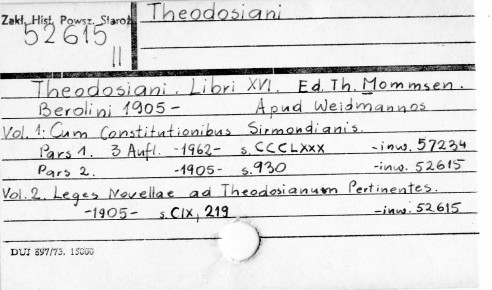 Zakł. Hist. Powsz. Staroż.
52615
II
Theodosiani
Theodosiani. Libri XVI. Ed. Th. Mommsen.
Berolini 1905- Apud Weidmannos
Vol. 1: Cum Constitutionibus Sirmondianis.
Pars 1. 3 Aufl. -1962- s. CCCLXXX -inw. 57234
Pars 2. -1905- s. 930 -inw. 52615
Vol. 2. Leges Novellae ad Theodosianum Pertinentes.
-1905- s. CIX, 219 -inw. 52615
DUJ 897/73. 15000